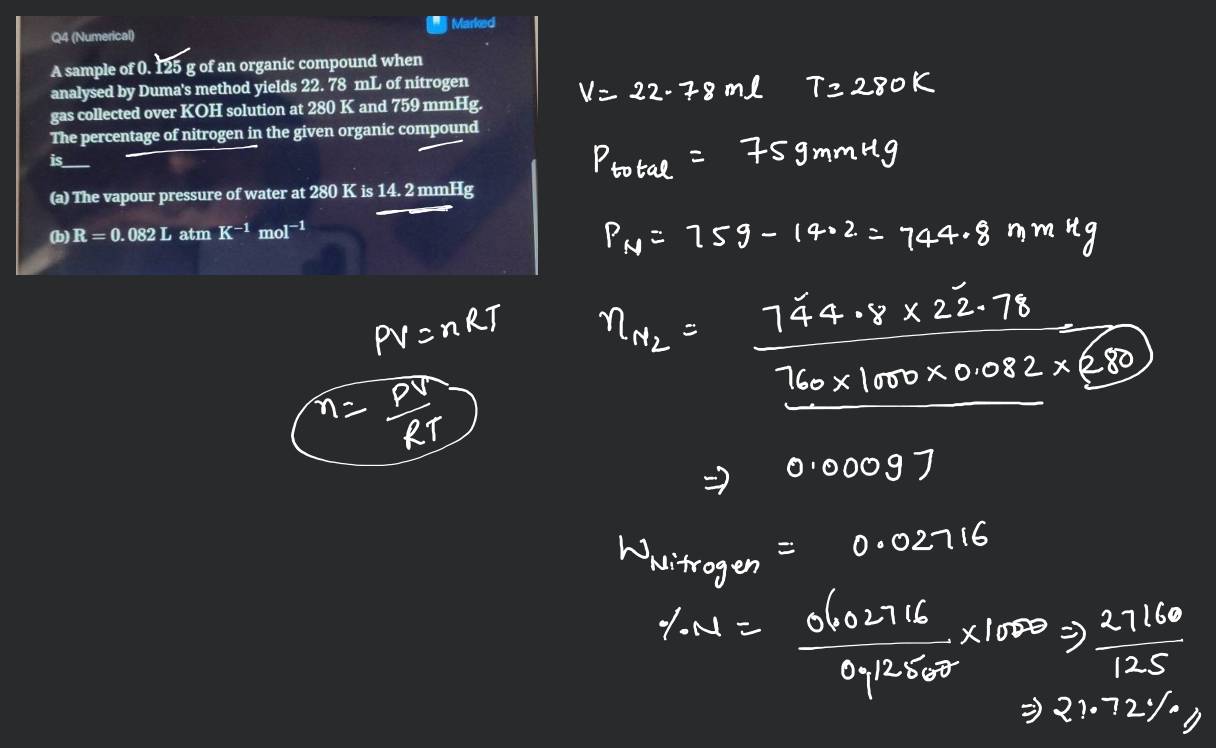 Marked
Q4 (Numerical)
A sample of 0. 125 g of an organic compound when
analysed by Duma's method yields 22. 78 mL of nitrogen
gas collected over KOH solution at 280 K and 759 mmHg.
The percentage of nitrogen in the given organic compound
is__
(a) The vapour pressure of water at 280 K is 14. 2 mmHg
(b) R = 0. 082 L atm K⁻¹ mol⁻¹
PV = nRT
n = PV/RT
V = 22.78 ml T = 280K
Ptotal = 759mmHg
PN = 759 - 14.2 = 744.8 mm Hg
nN2 = 744.8 x 22.78
760 x 1000 x 0.082 x 280
⇒ 0.00097
WNitrogen = 0.02716
%N = 0.02716/0.12500 x 1000 ⇒ 27160/125
⇒ 21.72%